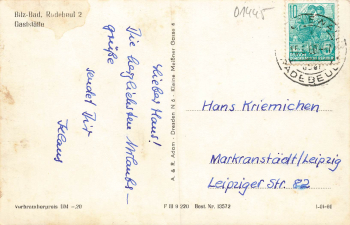 Bilz-Bad, Radebeul 2
Gaststätte
01445
Lieber Hans!
Die herzlichsten Urlaubs-
grüße
sendet Dir
Klaus
A. & R. Adam · Dresden N 6 · Kleine Meißner Gasse 8
10
RADEBEUL
Hans Kriemichen
Markranstädt/Leipzig
Leipziger Str. 82
Verbraucherpreis DM -,20
P III 9 220 Best. Nr. 12572